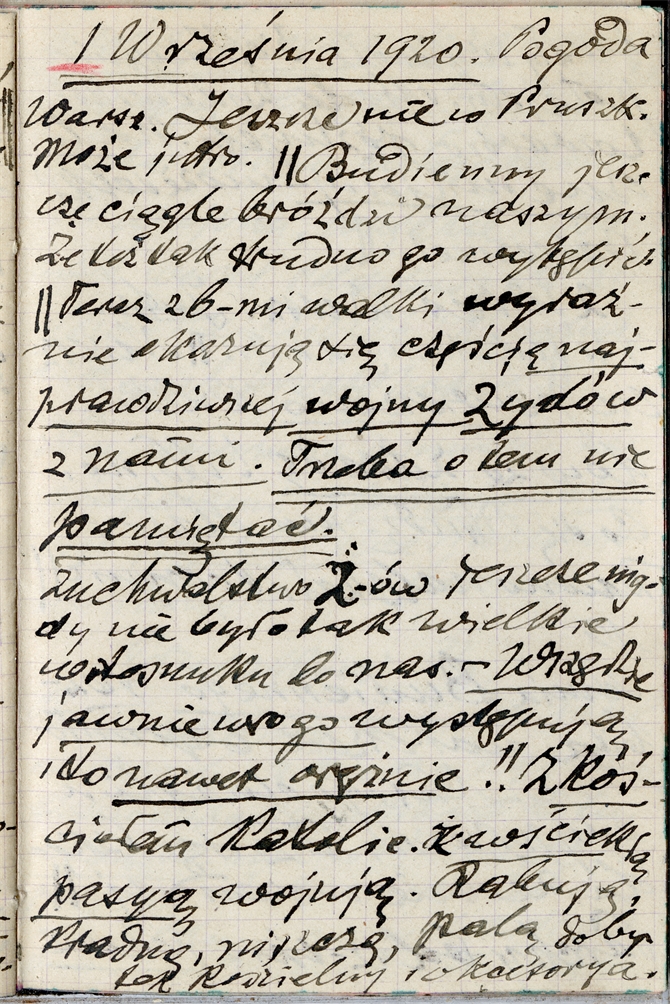 1 Września 1920. Pogoda
Warsz. Jeszcze nie w Pruszk.
Może jutro. || Budienny jesz-
cze ciągle bróździ naszym.
Że też tak trudno go wytępić
|| Teraz zb-mi walki wyraź-
nie okazują się częścią naj-
prawdziwszej wojny Żydów
z nami. Trzeba o tem nie
pamiętać.
Zuchwalstwo Ż-ów jeszcze nig-
dy nie było tak wielkie
w stosunku do nas. - Wszędzie
jawnie wrogo występują,
i to nawet orężnie!! Z Koś-
ciołem Katolic. z wściekłą
pasyą wojują. Rabują,
Kradną, niszczą, palą doby-
tek kościelny i